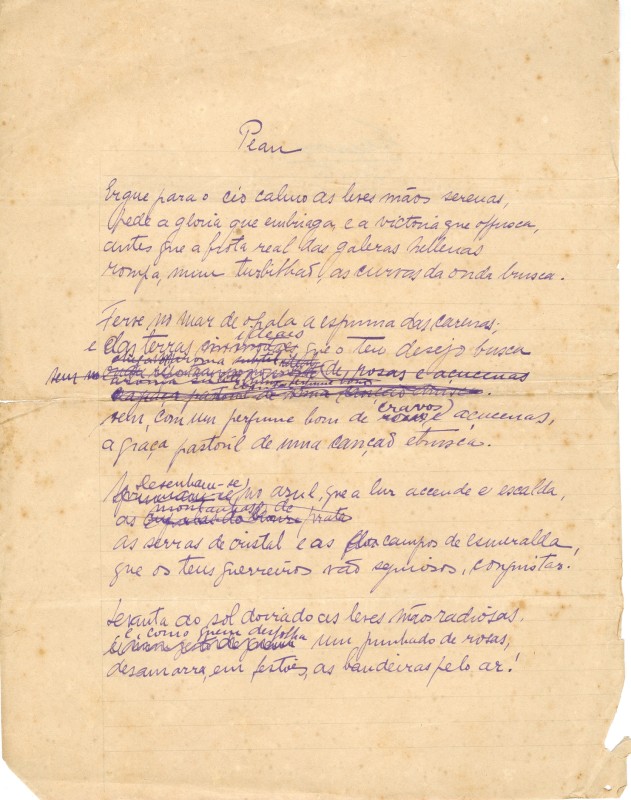 Pean
Ergue para o céo calmo as leves mãos serenas,
pede a gloria que embriaga, e a victoria que offusca,
antes que a frota real das galeras hellenas
rompa, num turbilhaõ, as curvas da onda brusca.
Ferve no mar de opala a espuma das carenas;
e das terras que o teu desejo busca
vem
de rosas e açucenas
vem, com um perfume bom de cravos e açucenas,
a graça pastoril de uma cançaõ etrusca.
Desenham-se, no azul, que a luz accende e escalda,
as montanhas de prata
as serras de cristal e as dos campos de esmeralda
que os teus guerreiros vaõ conquistar!
Levanta ao sol doirado as leves mãos radiosas.
e, como quem desfolha um punhado de rosas,
desamarra, em festões, as bandeiras pelo ar!